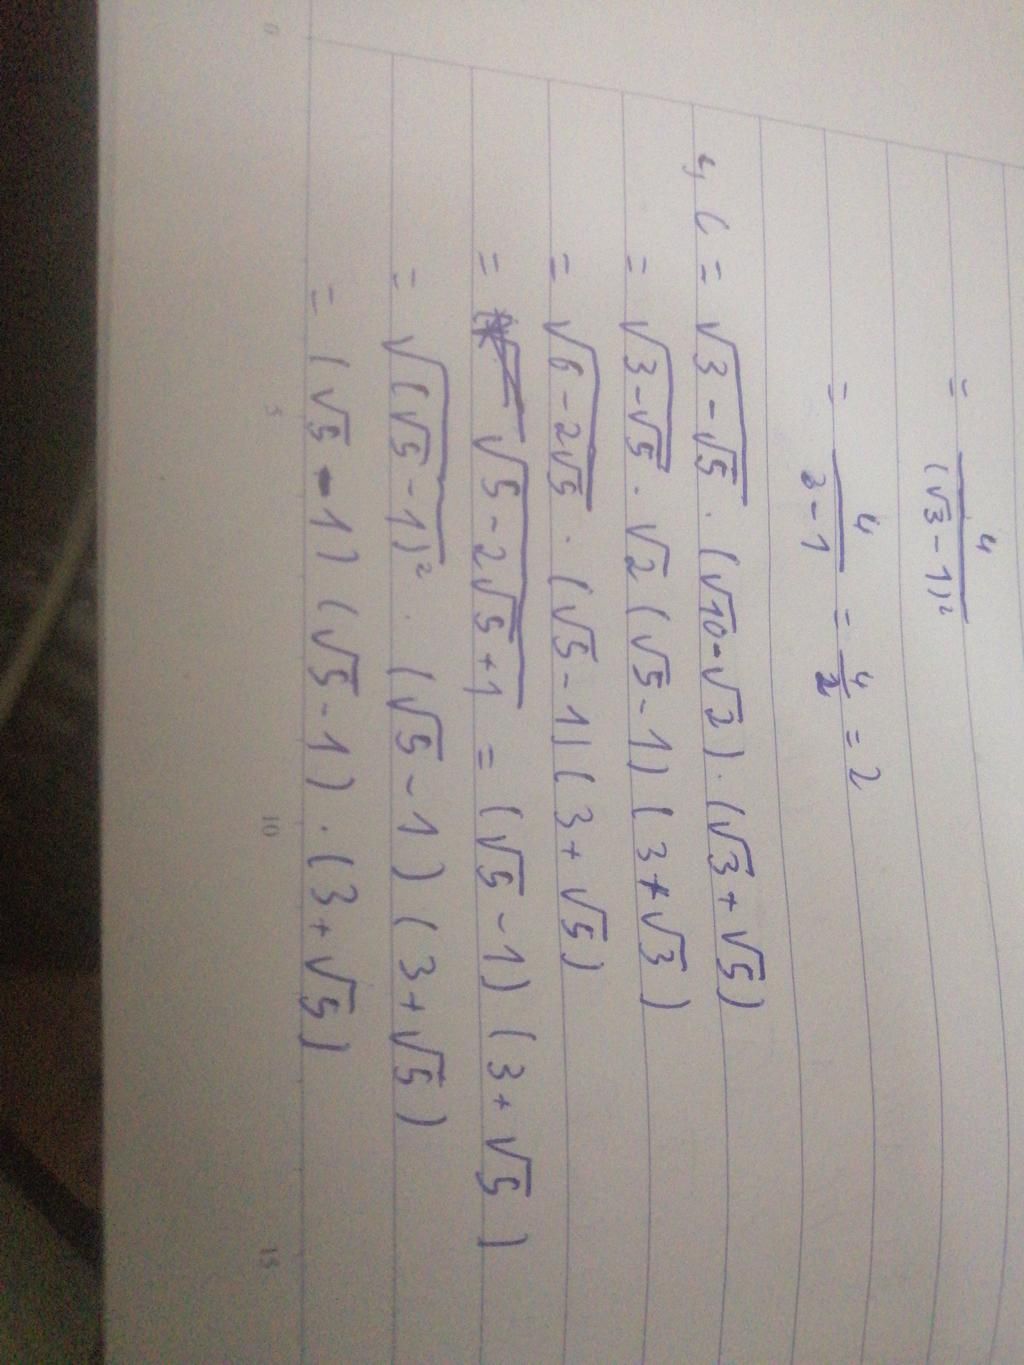 = 4/(√3 - 1)²
= 4/(3 - 1) = 4/2 = 2
4, C = √(3 - √5) . (√10 - √2) . (√3 + √5)
= √(3 - √5) . √2 (√5 - 1) (3 + √3)
= √(6 - 2√5) . (√5 - 1) (3 + √5)
= √(5 - 2√5 + 1) = (√5 - 1) (3 + √5)
= √((√5 - 1)²) . (√5 - 1) (3 + √5)
= (√5 - 1) (√5 - 1) . (3 + √5)
0 5 10 15